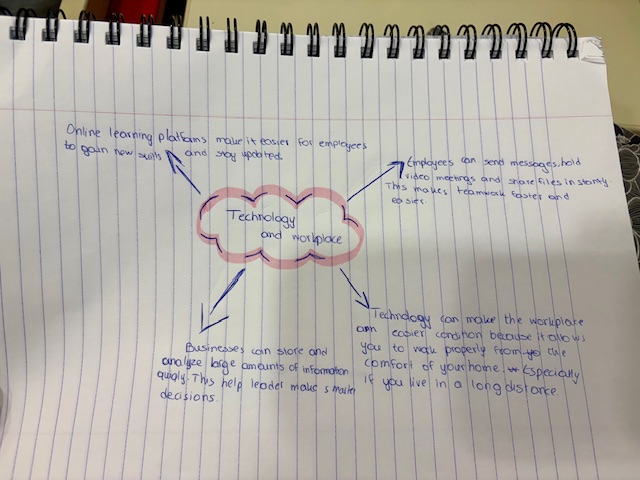 Online learning platforms make it easier for employees
to gain new skills and stay updated.
Employees can send messages, hold
video meetings and share files instantly
This makes teamwork faster and
easier.
Technology
and workplace
Businesses can store and
analyze large amounts of information
quickly. This help leader make smarter
decisions.
Technology can make the workplace
an easier condition because it allows
you to work properly from the
comfort of your home. Especially
if you live in a long distance